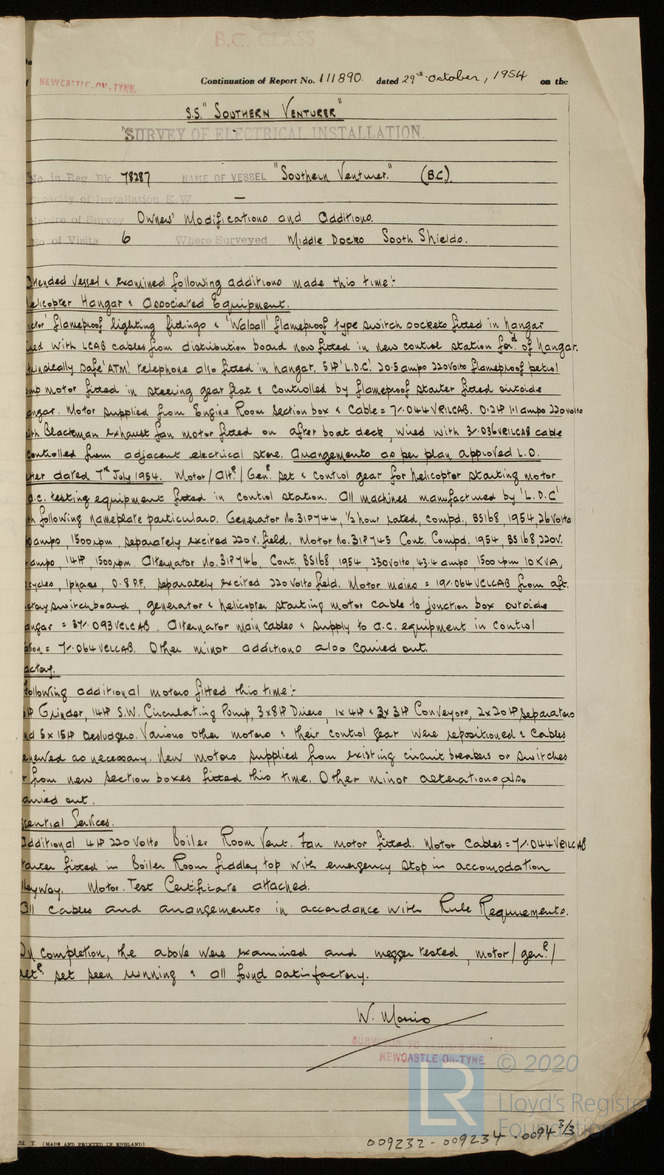 B.C. CLASS
NEWCASTLE-ON-TYNE.
Continuation of Report No. 111890. dated 29th October, 1954 on the
S.S. "Southern Venturer"
SURVEY OF ELECTRICAL INSTALLATION.
No. in Reg. Bk. 78287 NAME OF VESSEL "Southern Venturer." (B.C.)
of Installation K.W. —
Nature of Survey Owners' Modifications and Additions.
No. of Visits 6 Where Surveyed Middle Docks South Shields.
ttended vessel & examined following additions made this time:-
elicopter Hangar & Associated Equipment.
flameproof lighting fittings & 'Walsall' flameproof type switch sockets fitted in hangar
ed with LCAB cables from distribution board now fitted in new control station for'd of hangar.
insically safe 'ATM' telephone also fitted in hangar. 5HP 'L.D.C.' 20.5 amps 220 volts flameproof petrol
mp motor fitted in steering gear flat & controlled by flameproof starter fitted outside
angar. Motor supplied from Engine Room Section box & Cable = 7/.044 VRILCAB. 0.2HP 1.1 amps 220 volts
th Blackman exhaust fan motor fitted on after boat deck, wired with 3/.036 VRILCAB cable
controlled from adjacent electrical store. Arrangements as per plan approved L.O.
tter dated 7th July 1954. Motor/Altr/Genr set & control gear for helicopter starting motor
a.c. testing equipment fitted in control station. All machines manufactured by 'L.D.C.'
h following nameplate particulars. Generator No. 31P744, ½ hour rated, compd., BS168, 1954, 26 volts
amps, 1500 rpm, separately excited 220 v. field. Motor No. 31P745 Cont. Compd. 1954, BS168 220v.
amps 14HP 1500 rpm. Alternator No. 31P746, Cont. BS168, 1954, 230 volts 43.4 amps 1500 rpm 10 KVA,
cycles, 1 phase, 0.8 P.F. separately excited 220 volts field. Motor mains = 19/.064 VCLCAB from aft
switchboard, generator & helicopter starting motor cable to junction box outside
angar = 37/.093 VCLCAB. Alternator main cables & supply to a.c. equipment in control
tion = 7/.064 VCLCAB. Other minor additions also carried out.
actory.
following additional motors fitted this time:-
HP Grinder, 14HP S.W. Circulating Pump, 3x8HP Driers, 1x4HP & 3x3HP Conveyors, 2x20HP Separators
nd 5x15HP Desludgers. Various other motors & their control gear were repositioned & cables
enewed as necessary. New motors supplied from existing circuit breakers or switches
r from new section boxes fitted this time. Other minor alterations also
arried out.
sential Services.
dditional 4HP 220 volts Boiler Room Vent. Fan motor fitted. Motor cables = 7/.044 VRILCAB
tarter fitted in Boiler Room fiddley top with emergency stop in accomodation
lleyway. Motor Test Certificate attached.
All cables and arrangements in accordance with Rule Requirements.
On completion, the above were examined and megger tested, motor/genr/
altr set seen running & all found satisfactory.
W. Morris
SURVEYOR TO LLOYD'S REGISTER
NEWCASTLE-ON-TYNE
© 2020
LR
Lloyd's Register
Foundation
T. (MADE AND PRINTED IN ENGLAND)
009232 - 009234 - 0094 3/3